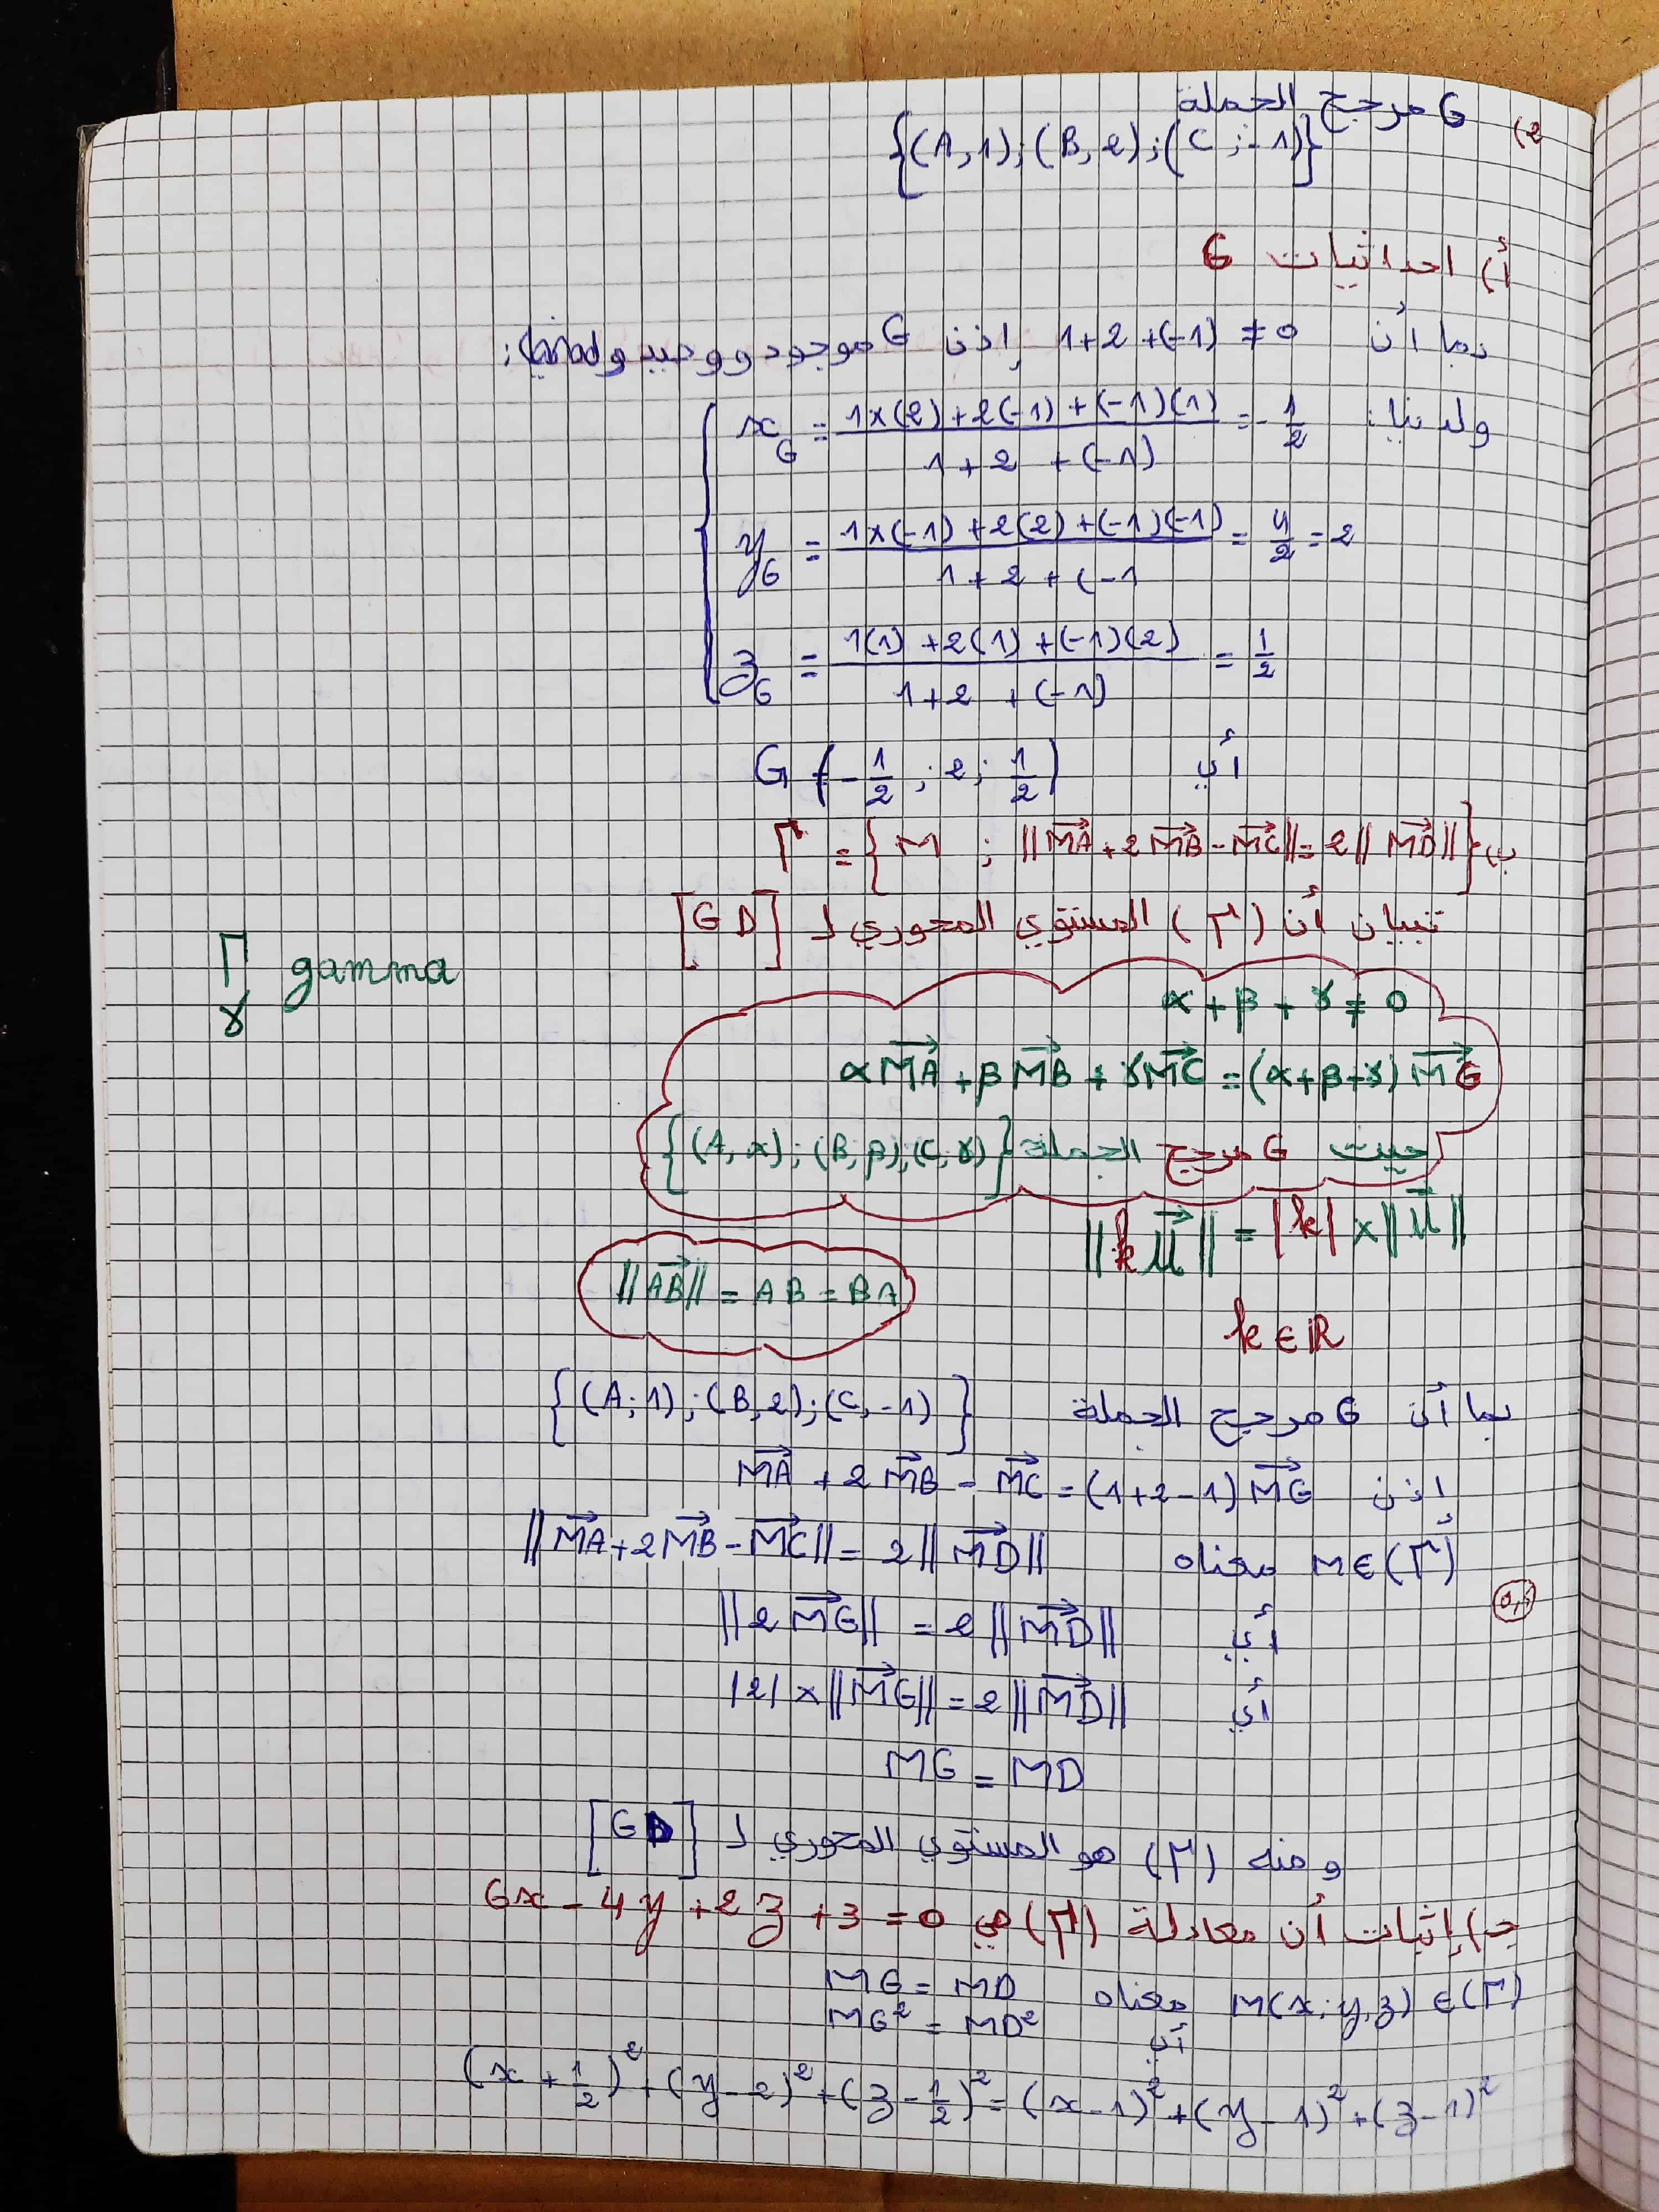 2) G مرجح الجملة
{(A,1);(B,2);(C;-1)}
أ) احداثيات G
بما أن 1+2+(-1) ≠ 0 إذن G موجود ووحيد و
ولدينا: x_G = (1×(2)+2(-1)+(-1)(1))/(1+2+(-1)) = -1/2
y_G = (1×(-1)+2(2)+(-1)(-1))/(1+2+(-1 = 4/2 = 2
z_G = (1(1)+2(1)+(-1)(2))/(1+2+(-1)) = 1/2
أي G(-1/2 ; 2 ; 1/2)
ب) Γ = {M ; ||MA→ + 2MB→ - MC→|| = 2||MD→||}
تبيان أن (Γ) المستوي المحوري لـ [GD]
Γ gamma
γ
α + β + γ ≠ 0
αMA→ + βMB→ + γMC→ = (α+β+γ)MG→
حيث G مرجح الجملة {(A,α);(B,β);(C,γ)}
||k u→|| = |k| × ||u→||
||AB→|| = AB = BA
k ∈ ℝ
بما أن G مرجح الجملة {(A;1);(B,2);(C,-1)}
إذن MA→ + 2MB→ - MC→ = (1+2-1)MG→
M∈(Γ) معناه ||MA→ + 2MB→ - MC→|| = 2||MD→||
أي ||2MG→|| = 2||MD→||
أي |2|×||MG→|| = 2||MD→||
MG = MD
ومنه (Γ) هو المستوي المحوري لـ [GD]
ج) إثبات أن معادلة (Γ) هي 6x - 4y + 2z + 3 = 0
M(x;y,z) ∈ (Γ) معناه MG = MD
أي MG² = MD²
(x+1/2)² + (y-2)² + (z-1/2)² = (x-1)² + (y-1)² + (z-1)²